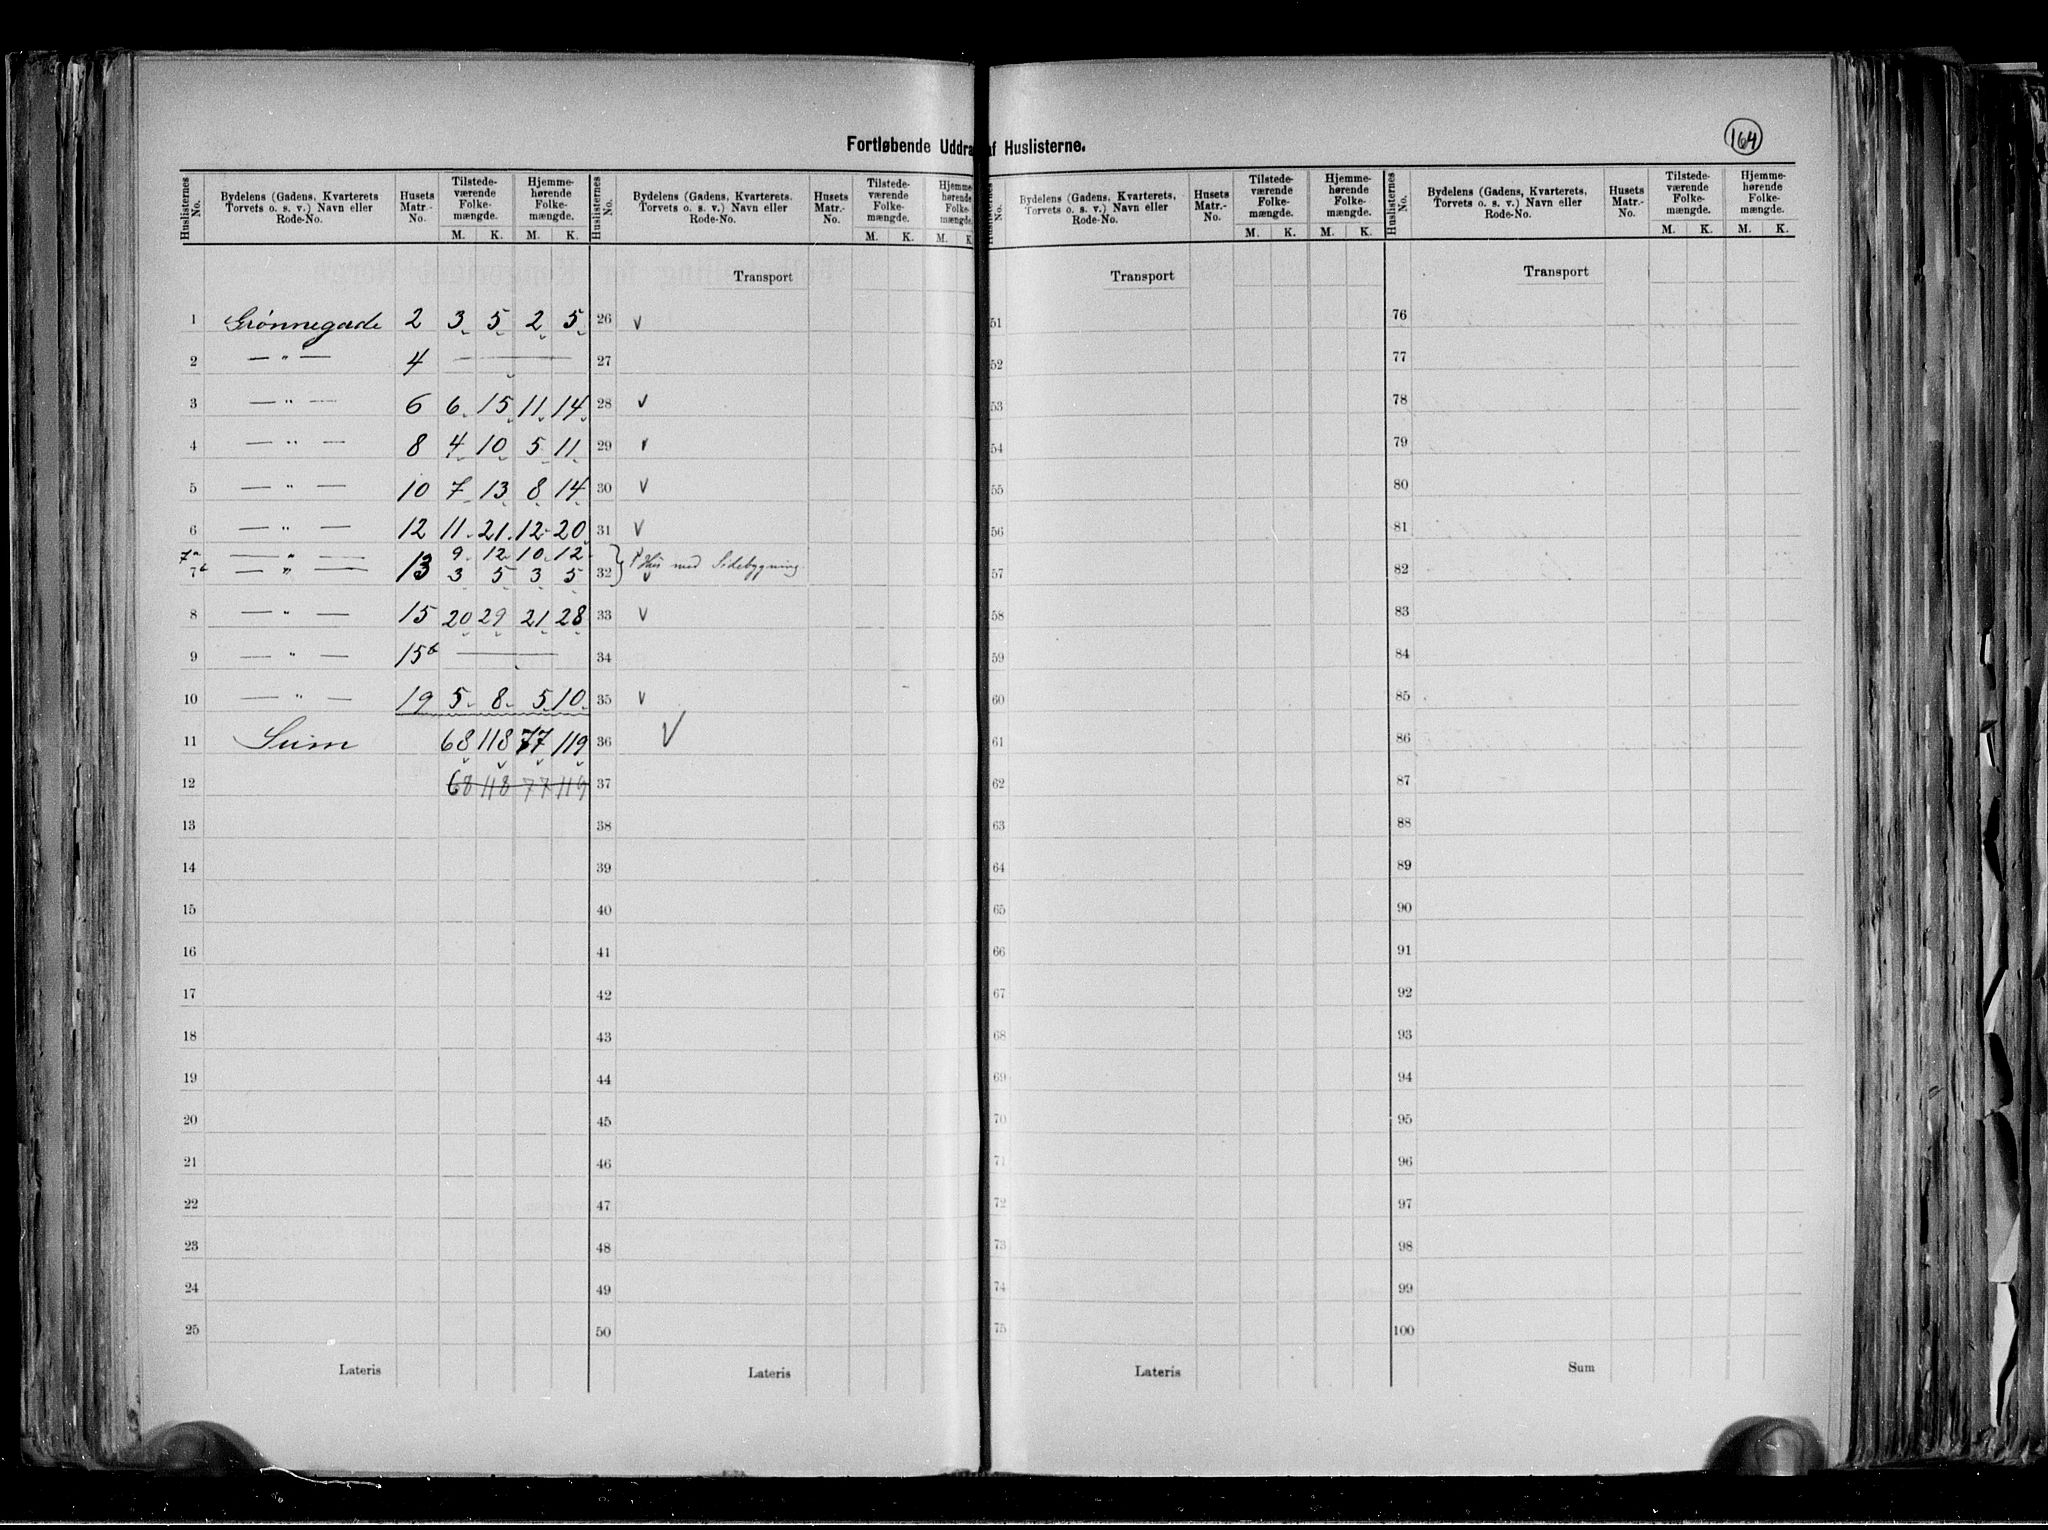 164
Fortløbende Uddra af Huslisterne.
Huslisternes No. Bydelens (Gadens, Kvarterets Torvets o. s. v.) Navn eller Rode-No. Husets Matr.-No. Tilstedeværende Folkemængde. M. K. Hjemmehørende Folkemængde. M. K.
1 Grønnegade 2 3 5 2 5
2 — " — 4 —
3 — " — 6 6 15 11 14
4 — " — 8 4 10 5 11
5 — " — 10 7 13 8 14
6 — " — 12 11 21 12 20
7a — " — 13 9 12 10 12
7b — " — 3 5 3 5
8 — " — 15 20 29 21 28
9 — " — 15b —
10 — " — 19 5 8 5 10
11 Sum 68 118 77 119
12 68 118 77 119
13
14
15
16
17
18
19
20
21
22
23
24
25
Lateris
Huslisternes No. Bydelens (Gadens, Kvarterets. Torvets o. s. v.) Navn eller Rode-No. Husets Matr.-No. Tilstedeværende Folkemængde. M. K. Hjemmehørende Folkemængde. M. K.
Transport
26 v
27
28 v
29 v
30 v
31 v
32 1 Hus med Sidebygning. v
33 v
34
35 v
36 V
37
38
39
40
41
42
43
44
45
46
47
48
49
50
Lateris
Huslisternes No. Bydelens (Gadens, Kvarterets, Torvets o. s. v.) Navn eller Rode-No. Husets Matr.-No. Tilstedeværende Folkemængde. M. K. Hjemmehørende Folkemængde. M. K.
Transport
51
52
53
54
55
56
57
58
59
60
61
62
63
64
65
66
67
68
69
70
71
72
73
74
75
Lateris
Huslisternes No. Bydelens (Gadens, Kvarterets, Torvets o. s. v.) Navn eller Rode-No. Husets Matr.-No. Tilstedeværende Folkemængde. M. K. Hjemmehørende Folkemængde. M. K.
Transport
76
77
78
79
80
81
82
83
84
85
86
87
88
89
90
91
92
93
94
95
96
97
98
99
100
Sum